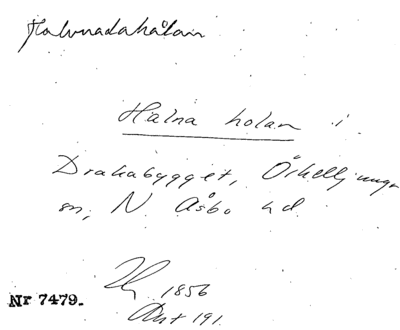 Halvnadahålan
Halna holan i
Drakabygget, Örkelljunga
sn, N. Åsbo hd
1856
Avt 191
Nr 7479.